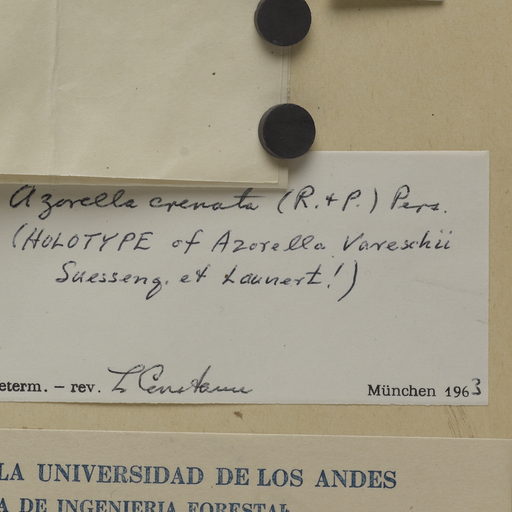 Azorella crenata (R. & P.) Pers.
(HOLOTYPE of Azorella Vareschii
Suesseng. et Launert!)
eterm. – rev. L Constance
München 1963
LA UNIVERSIDAD DE LOS ANDES
A DE INGENIERIA FORESTAL